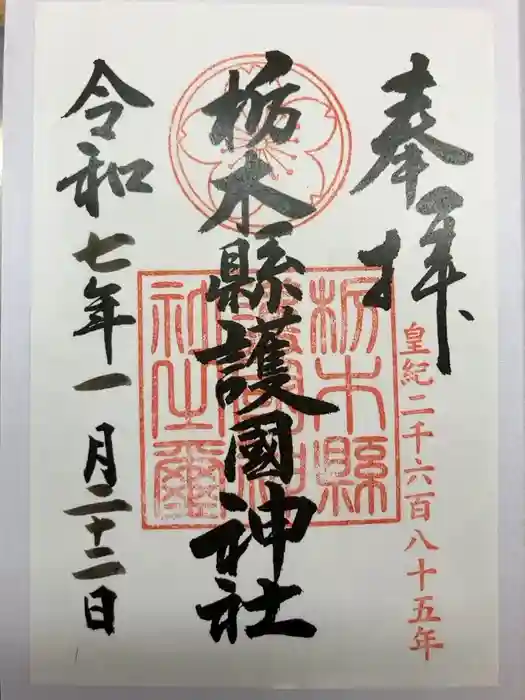 奉拝
皇紀二千六百八十五年
栃木縣護國神社
栃木縣護國神社之璽
令和七年一月二十二日